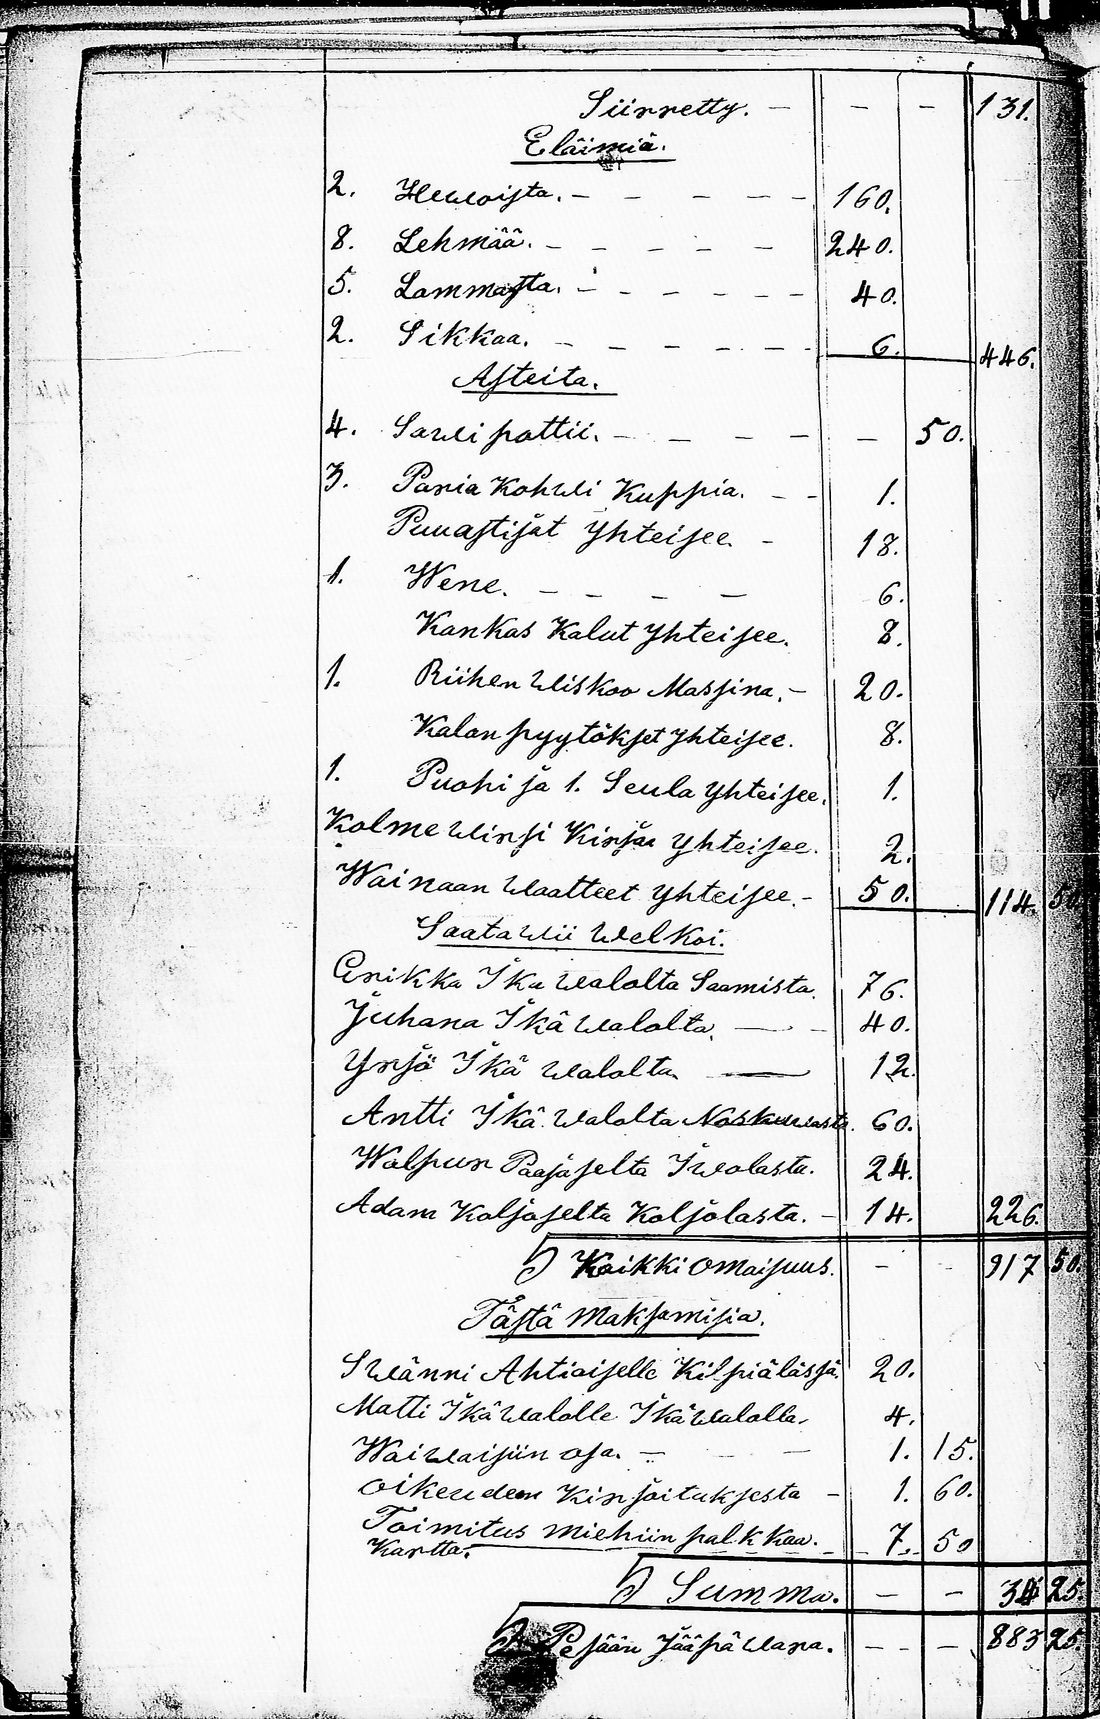 Siirretty. - - - 131.
Eläimiä.
2. Hewoista. - - - - - - 160.
8. Lehmää. - - - - - 240.
5. Lammasta. - - - - - - 40.
2. Sikkaa. - - - - - - 6. 446.
Asteita.
4. Sawi pattii. - - - - - 50.
3. Paria Kohwi Kuppia. - - 1.
Puuastijat Yhteisee. - 18.
1. Wene. - - - - 6.
Kankas Kalut Yhteisee. 8.
1. Riihen Wiskoo Massina. - 20.
Kalan pyytökset Yhteisee. 8.
1. Puohi ja 1. Seula Yhteisee. 1.
Kolme Wirsi Kirjaa Yhteisee. 2.
Wainaan Waatteet Yhteisee. - 50. 114. 50
Saatawii Welkoi.
Erikka Ikä Walolta Saamista. 76.
Juhana Ikä Walolta. - - 40.
Yrjö Ikä Walolta. - 12.
Antti Ikä Walolta Noskuwasta. 60.
Walpuri Paajaselta Iwolasta. 24.
Adam Koljoselta Koljolasta. - 14. 226.
Kaikki Omaisuus. - - 917 50.
Tästä Maksamisia.
Swänni Ahtiaiselle Kilpiälässä. 20.
Matti Ikä Walolle Ikä Walolla. 4.
Waiwaisiin osa. - - 1. 15.
Oikeuden Kirjoituksesta - 1. 60.
Toimitus miehiin palkkaa. 7. 50
Kartta.
Summa. - - 34 25.
Pesään Jääpä Wara. - - - 883 25.